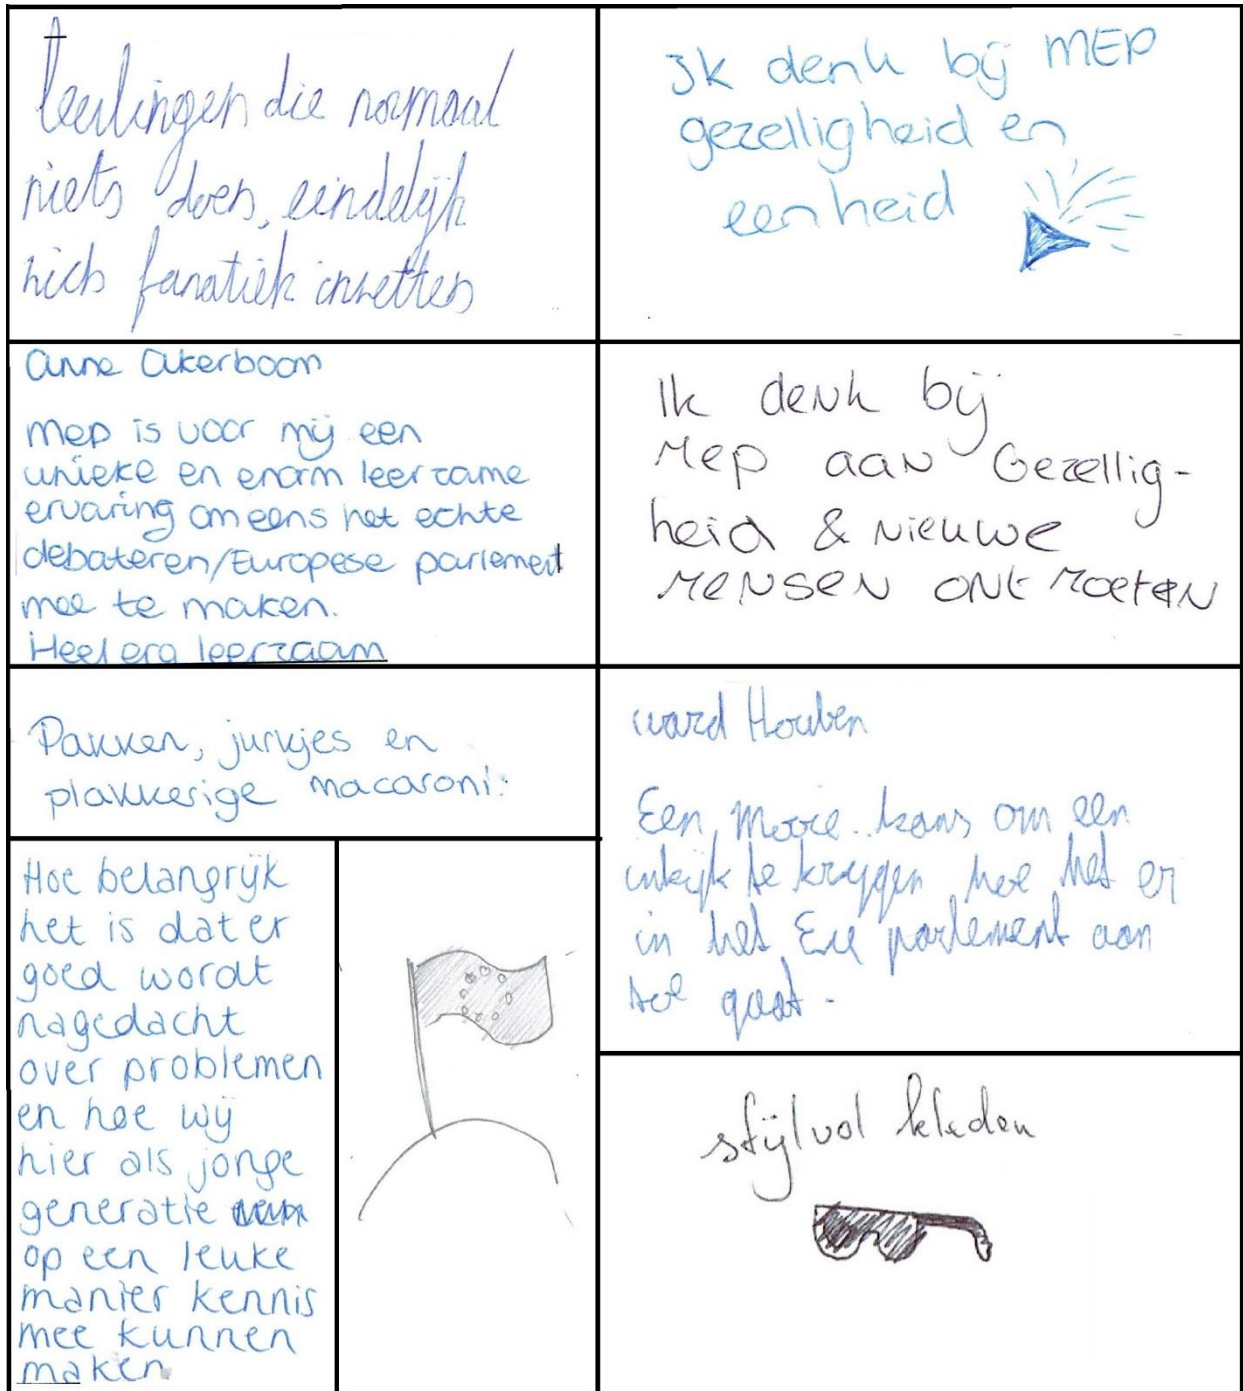 Leerlingen die normaal
niets doen, eindelijk
zich fanatiek inzetten
Ik denk bij MEP
gezelligheid en
eenheid
Anne Akerboom
Mep is voor mij een
unieke en enorm leerzame
ervaring om eens het echte
debateren/Europese parlement
mee te maken.
Heel erg leerzaam
Ik denk bij
Mep aan Gezellig-
heid & Nieuwe
Mensen ontmoeten
Pakken, jurkjes en
plakkerige macaroni.
Ward Houben
Een mooie kans om een
inkijk te krijgen hoe het er
in het Eu parlement aan
toe gaat.
Hoe belangrijk
het is dat er
goed wordt
nagedacht
over problemen
en hoe wij
hier als jonge
generatie
op een leuke
manier kennis
mee kunnen
maken.
stijlvol kleden